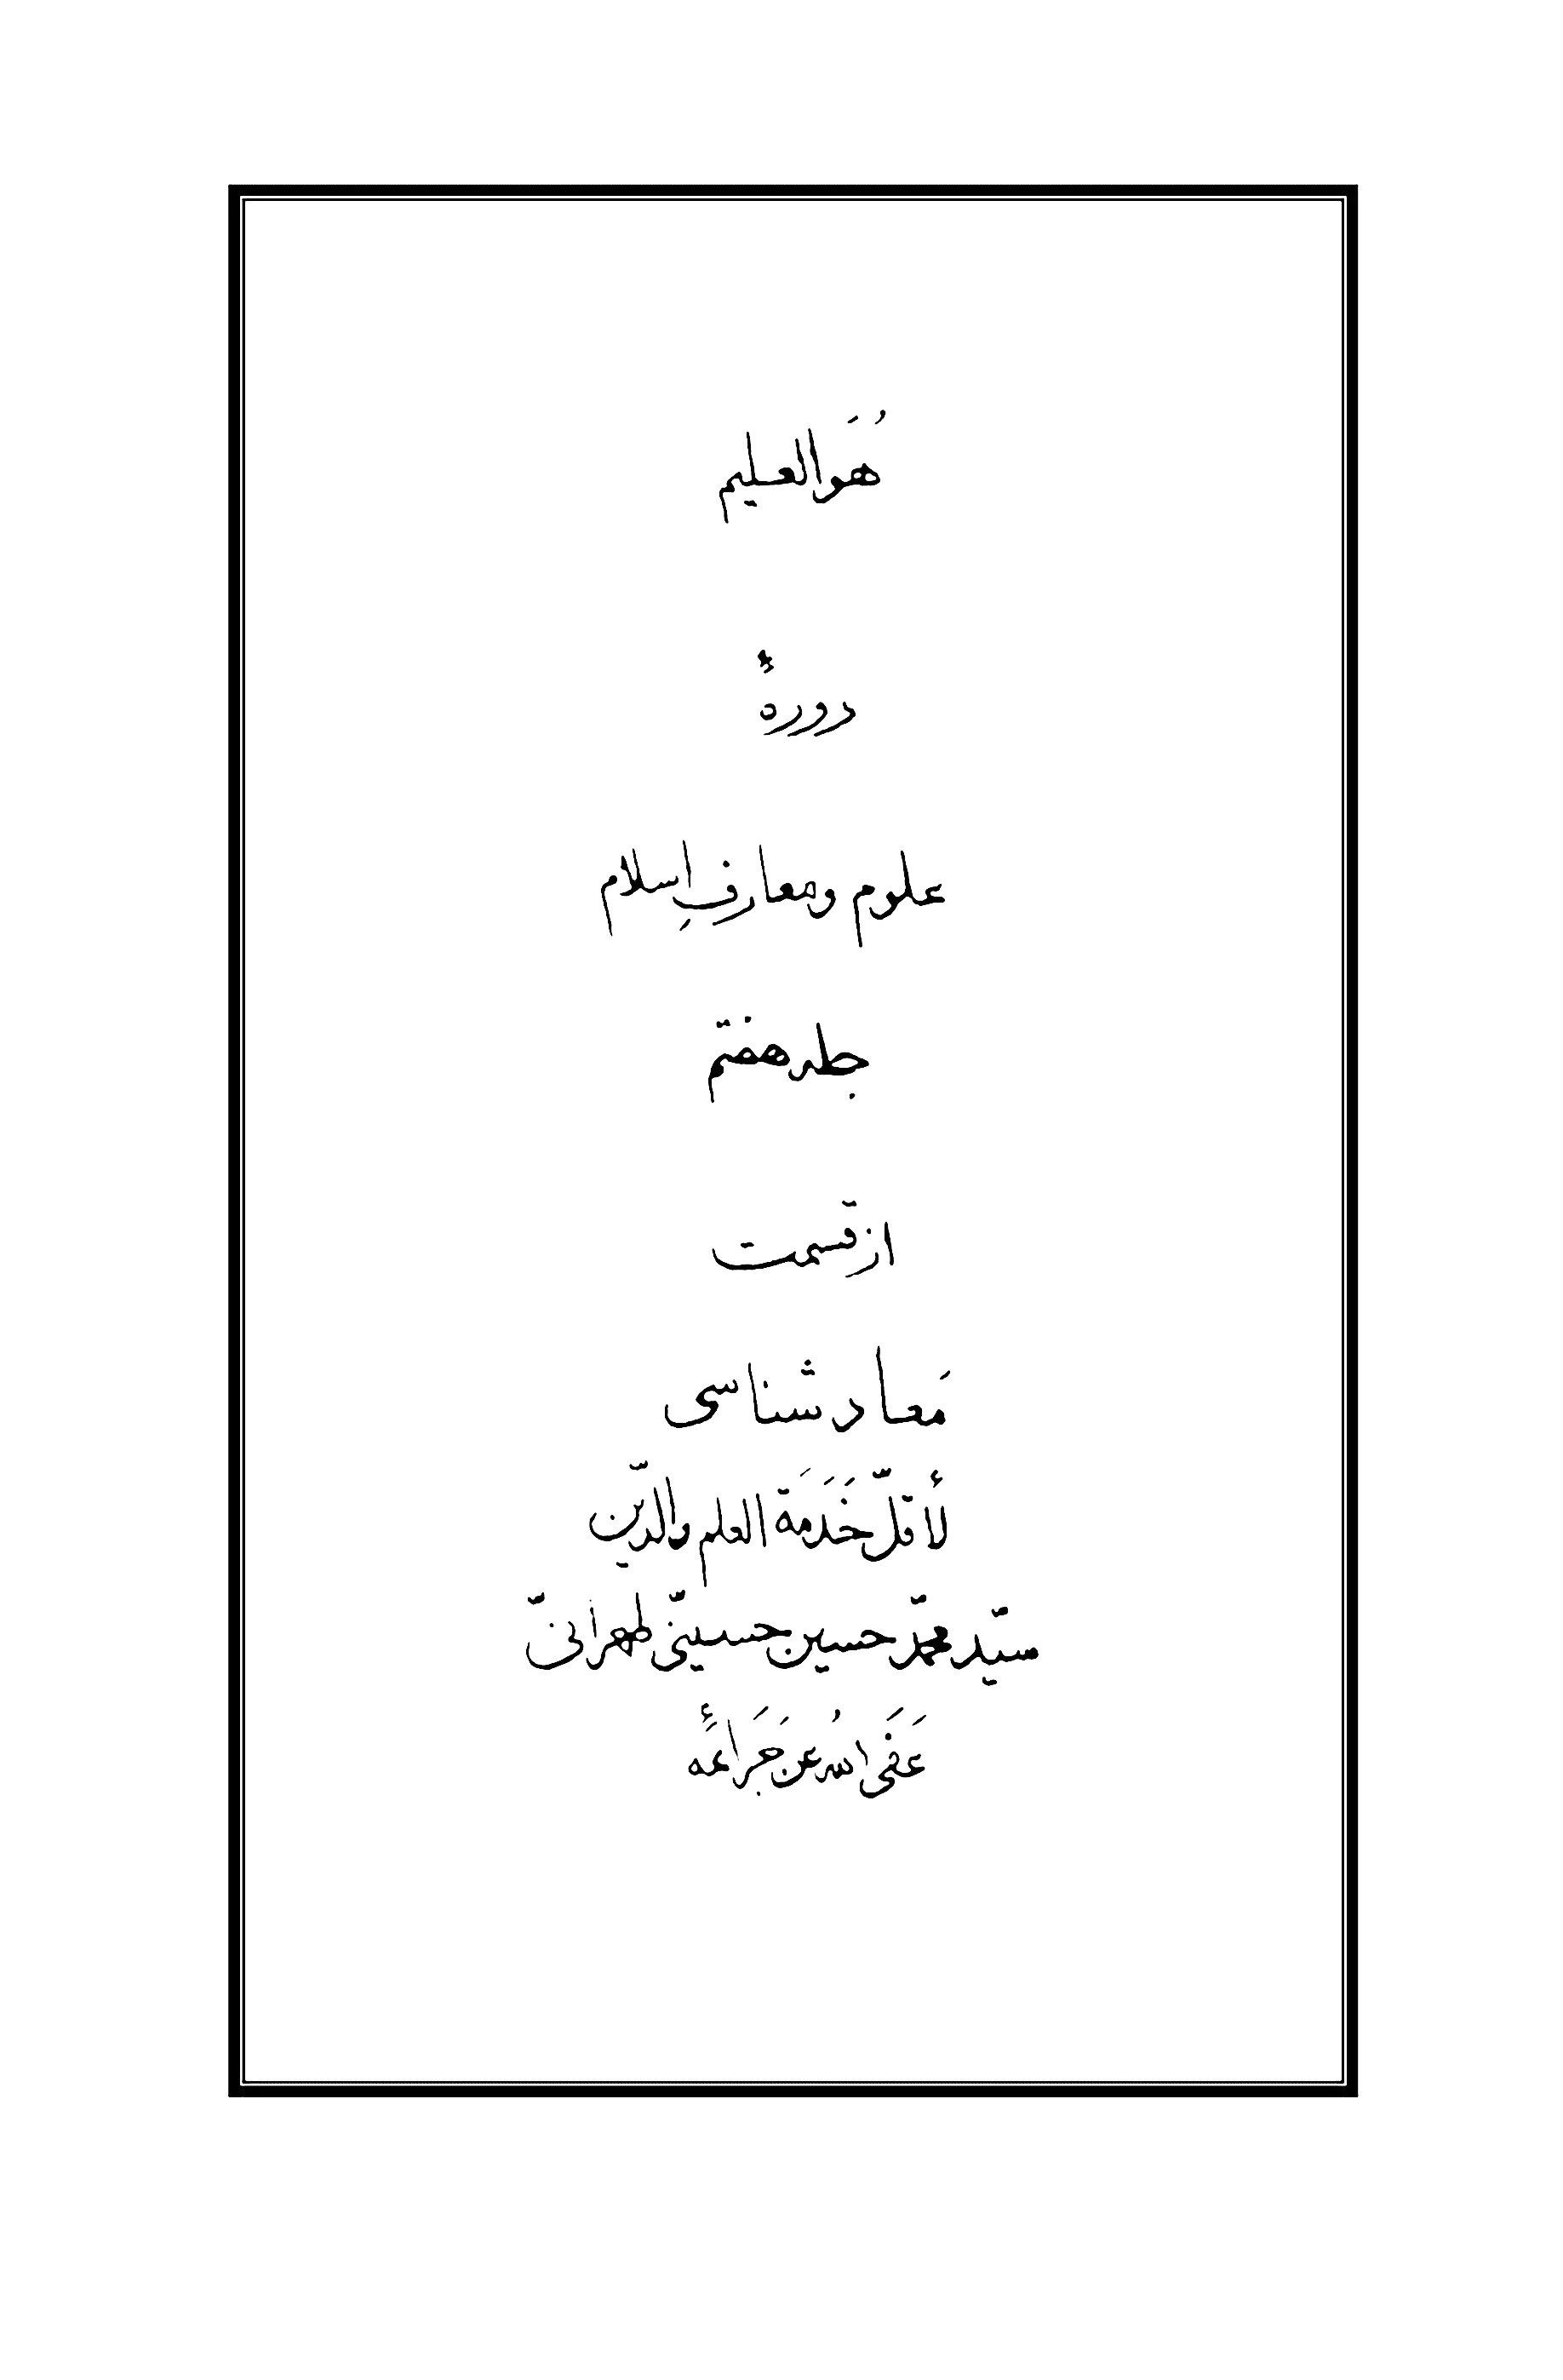 هُوَ العليم
دورهٔ
علوم و معارفِ اسلام
جلد هفتم
از قسمت
مَعاد شناسی
لأقلِّ خَدَمَة العلم والدّین
سیّد محمّد حسین حسینیّ طهرانیّ
عَفَی اللهُ عَن جَرَائمه